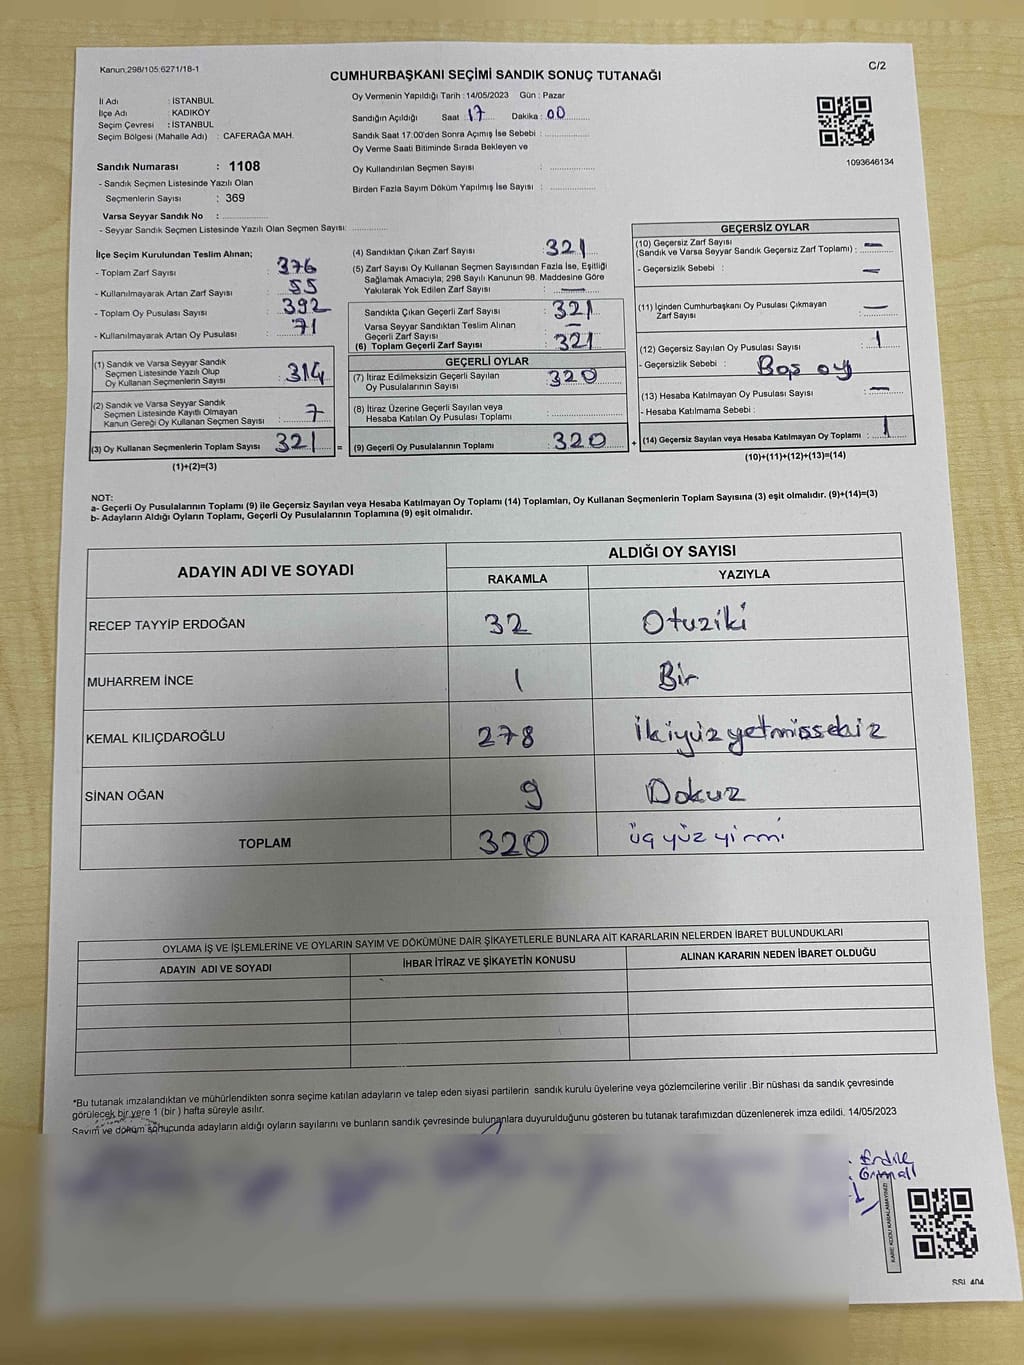 Kanun:298/105:6271/18-1
C/2
CUMHURBAŞKANI SEÇİMİ SANDIK SONUÇ TUTANAĞI
İl Adı : İSTANBUL
İlçe Adı : KADIKÖY
Seçim Çevresi : İSTANBUL
Seçim Bölgesi (Mahalle Adı) : CAFERAĞA MAH.
Oy Vermenin Yapıldığı Tarih : 14/05/2023 Gün : Pazar
Sandığın Açıldığı Saat : 17 Dakika : 00
Sandık Saat 17:00'den Sonra Açımış İse Sebebi :
Oy Verme Saati Bitiminde Sırada Bekleyen ve
Oy Kullandırılan Seçmen Sayısı :
Birden Fazla Sayım Döküm Yapılmış İse Sayısı :
1093646134
Sandık Numarası : 1108
- Sandık Seçmen Listesinde Yazılı Olan
Seçmenlerin Sayısı : 369
Varsa Seyyar Sandık No :
- Seyyar Sandık Seçmen Listesinde Yazılı Olan Seçmen Sayısı:
İlçe Seçim Kurulundan Teslim Alınan;
- Toplam Zarf Sayısı : 376
- Kullanılmayarak Artan Zarf Sayısı : 55
- Toplam Oy Pusulası Sayısı : 392
- Kullanılmayarak Artan Oy Pusulası : 71
(1) Sandık ve Varsa Seyyar Sandık
Seçmen Listesinde Yazılı Olup
Oy Kullanan Seçmenlerin Sayısı : 314
(2) Sandık ve Varsa Seyyar Sandık
Seçmen Listesinde Kayıtlı Olmayan
Kanun Gereği Oy Kullanan Seçmen Sayısı : 7
(3) Oy Kullanan Seçmenlerin Toplam Sayısı : 321 =
(1)+(2)=(3)
(4) Sandıktan Çıkan Zarf Sayısı : 321
(5) Zarf Sayısı Oy Kullanan Seçmen Sayısından Fazla İse, Eşitliği
Sağlamak Amacıyla; 298 Sayılı Kanunun 98. Maddesine Göre
Yakılarak Yok Edilen Zarf Sayısı : —
Sandıkta Çıkan Geçerli Zarf Sayısı : 321
Varsa Seyyar Sandıktan Teslim Alınan
Geçerli Zarf Sayısı : —
(6) Toplam Geçerli Zarf Sayısı : 321
GEÇERLİ OYLAR
(7) İtiraz Edilmeksizin Geçerli Sayılan
Oy Pusulalarının Sayısı : 320
(8) İtiraz Üzerine Geçerli Sayılan veya
Hesaba Katılan Oy Pusulası Toplamı :
(9) Geçerli Oy Pusulalarının Toplamı : 320 +
GEÇERSİZ OYLAR
(10) Geçersiz Zarf Sayısı
(Sandık ve Varsa Seyyar Sandık Geçersiz Zarf Toplamı) : —
- Geçersizlik Sebebi : —
(11) İçinden Cumhurbaşkanı Oy Pusulası Çıkmayan
Zarf Sayısı : —
(12) Geçersiz Sayılan Oy Pusulası Sayısı : 1
- Geçersizlik Sebebi : Boş oy
(13) Hesaba Katılmayan Oy Pusulası Sayısı : —
- Hesaba Katılmama Sebebi :
(14) Geçersiz Sayılan veya Hesaba Katılmayan Oy Toplamı : 1
(10)+(11)+(12)+(13)=(14)
NOT:
a- Geçerli Oy Pusulalarının Toplamı (9) ile Geçersiz Sayılan veya Hesaba Katılmayan Oy Toplamı (14) Toplamları, Oy Kullanan Seçmenlerin Toplam Sayısına (3) eşit olmalıdır. (9)+(14)=(3)
b- Adayların Aldığı Oyların Toplamı, Geçerli Oy Pusulalarının Toplamına (9) eşit olmalıdır.
ADAYIN ADI VE SOYADI
ALDIĞI OY SAYISI
RAKAMLA YAZIYLA
RECEP TAYYİP ERDOĞAN 32 Otuziki
MUHARREM İNCE 1 Bir
KEMAL KILIÇDAROĞLU 278 İkiyüzyetmişsekiz
SİNAN OĞAN 9 Dokuz
TOPLAM 320 üçyüzyirmi
OYLAMA İŞ VE İŞLEMLERİNE VE OYLARIN SAYIM VE DÖKÜMÜNE DAİR ŞİKAYETLERLE BUNLARA AİT KARARLARIN NELERDEN İBARET BULUNDUKLARI
ADAYIN ADI VE SOYADI İHBAR İTİRAZ VE ŞİKAYETİN KONUSU ALINAN KARARIN NEDEN İBARET OLDUĞU
*Bu tutanak imzalandıktan ve mühürlendikten sonra seçime katılan adayların ve talep eden siyasi partilerin sandık kurulu üyelerine veya gözlemcilerine verilir .Bir nüshası da sandık çevresinde
görülecek bir yere 1 (bir ) hafta süreyle asılır.
Sayım ve döküm sonucunda adayların aldığı oyların sayılarını ve bunların sandık çevresinde bulunanlara duyurulduğunu gösteren bu tutanak tarafımızdan düzenlenerek imza edildi. 14/05/2023
KARE KODU KARALAMAYINIZ!